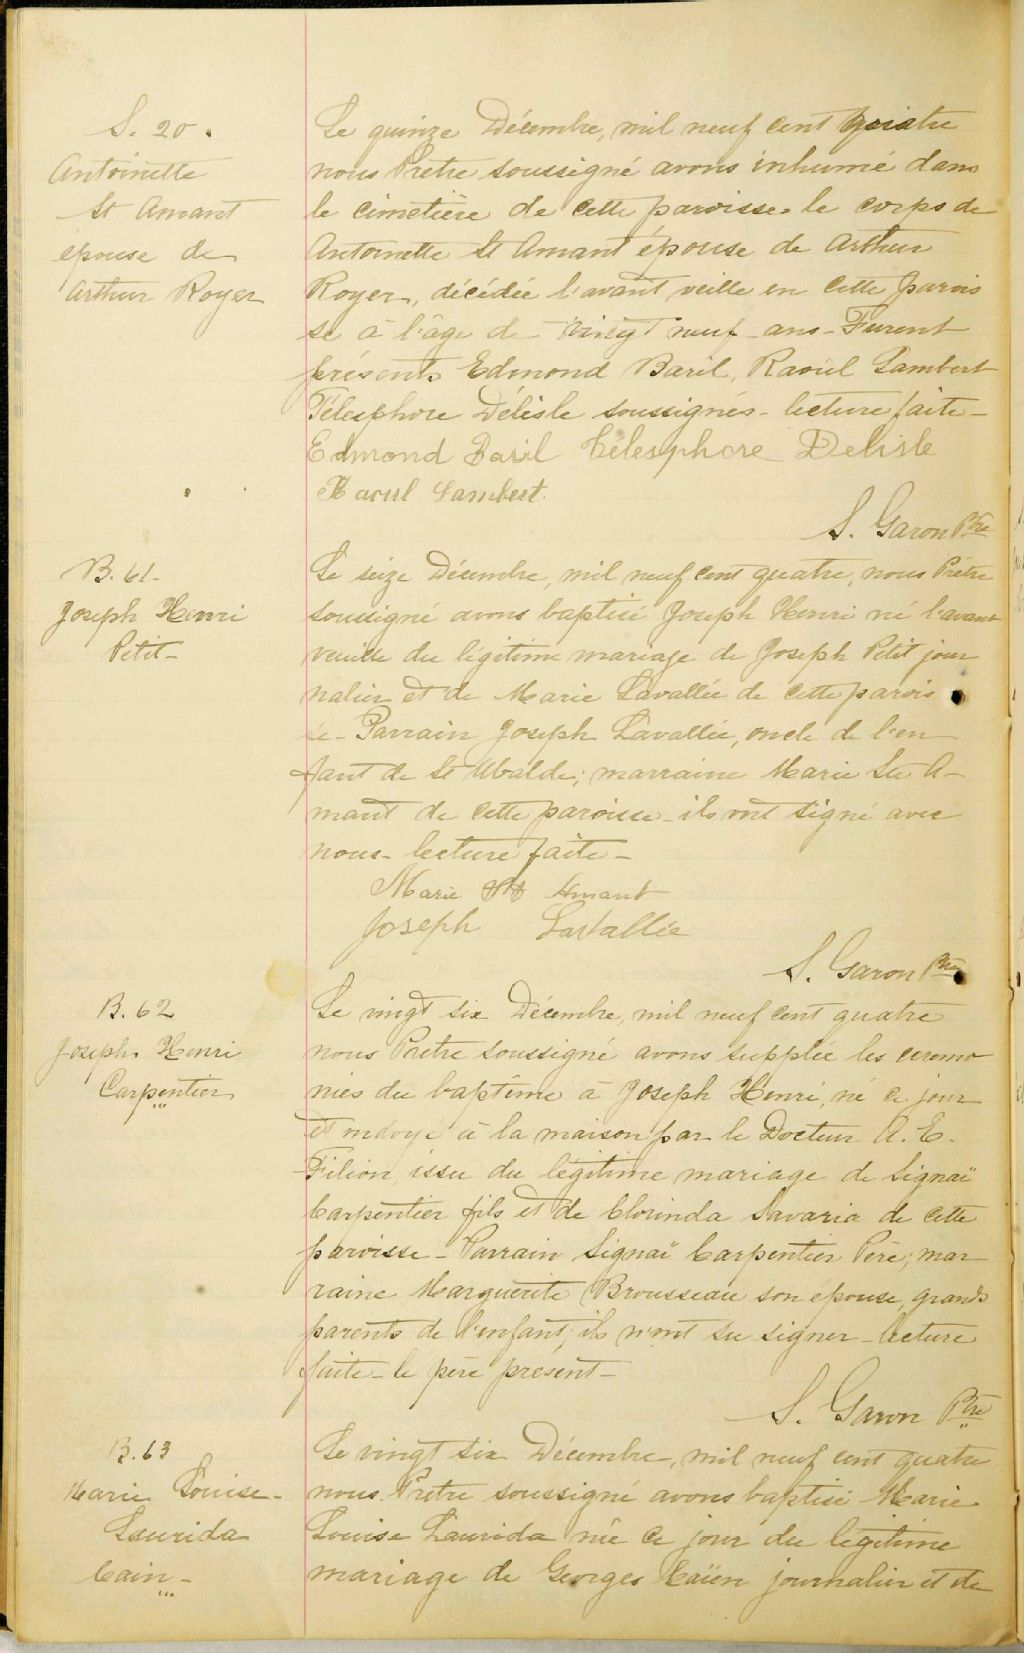 S. 20.
Antoinette
St Amant
épouse de
Arthur Royer
Le quinze Décembre, mil neuf cent quatre
nous Prêtre soussigné avons inhumé dans
le cimetière de cette paroisse le corps de
Antoinette St Amant épouse de Arthur
Royer, décédée l'avant veille en cette parois
se à l'âge de vingt neuf ans - Furent
présents Edmond Baril, Raoül Lambert
Télesphore Délisle soussignés - lecture faite -
Edmond Baril Télesphore Delisle
Raoul Lambert.
S. Garon Ptre
B. 61 -
Joseph Henri
Petit -
Le seize Décembre, mil neuf cent quatre, nous Prêtre
soussigné avons baptisé Joseph Henri né l'avant
veuille du légitime mariage de Joseph Petit jour
nalier et de Marie Lavallée de cette parois
se - Parrain Joseph Lavallée, oncle de l'en
fant de St Ubalde; marraine Marie St A-
mant de cette paroisse - ils ont signé avec
nous - lecture faite -
Marie St Amant
Joseph Lavallée
S. Garon Ptre
B. 62
Joseph Henri
Carpentier
Le vingt six Décembre, mil neuf cent quatre
nous Prêtre soussigné avons supplée les ceremo
nies du baptême à Joseph Henri, né ce jour
et ondoyé à la maison par le Docteur A. E.
Filion, issu du légitime mariage de Signaï
Carpentier fils et de Clorinda Savaria de cette
paroisse - Parrain Signaï Carpentier Père; mar
raine Marguerite Brousseau son épouse, grands
parents de l'enfant, ils n'ont su signer - lecture
faite - le père present -
S. Garon Ptre
B. 63
Marie Louise -
Laurida
Cain -
Le vingt six Décembre, mil neuf cent quatre
nous Prêtre soussigné avons baptisé Marie
Louise Laurida née ce jour du légitime
mariage de Georges Caïen journalier et de